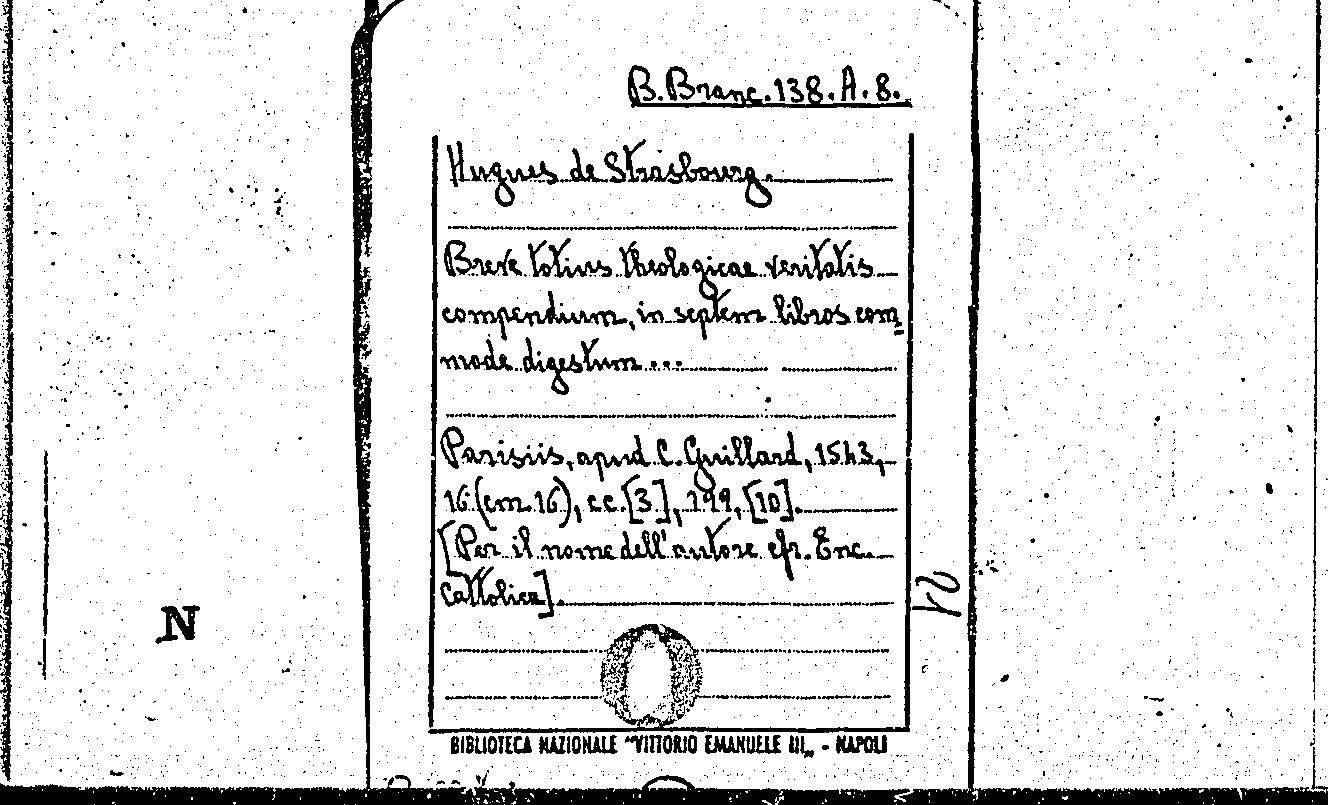 B. Branc. 138. A. 8.
Hugues de Strasbourg.
Breve totius theologicae veritatis
compendium, in septem libros com=
mode digestum ...
Parisiis, apud C. Guillard, 1543,
16 (cm. 16), cc. [3], 199, [10].
[Per il nome dell'autore cfr. Enc.
Cattolica].
N
BIBLIOTECA NAZIONALE "VITTORIO EMANUELE III„ - NAPOLI